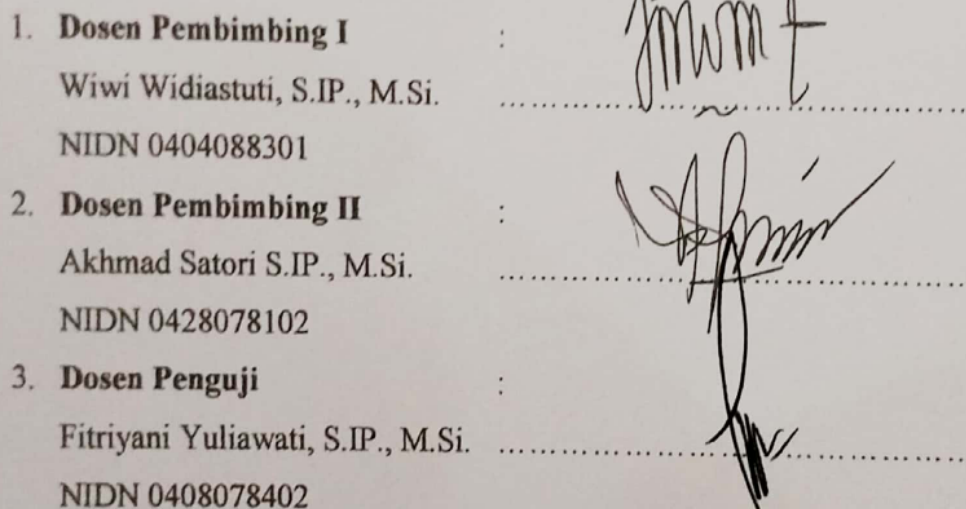 1. Dosen Pembimbing I :
Wiwi Widiastuti, S.IP., M.Si. ..............................
NIDN 0404088301
2. Dosen Pembimbing II :
Akhmad Satori S.IP., M.Si. ..............................
NIDN 0428078102
3. Dosen Penguji :
Fitriyani Yuliawati, S.IP., M.Si. ..............................
NIDN 0408078402